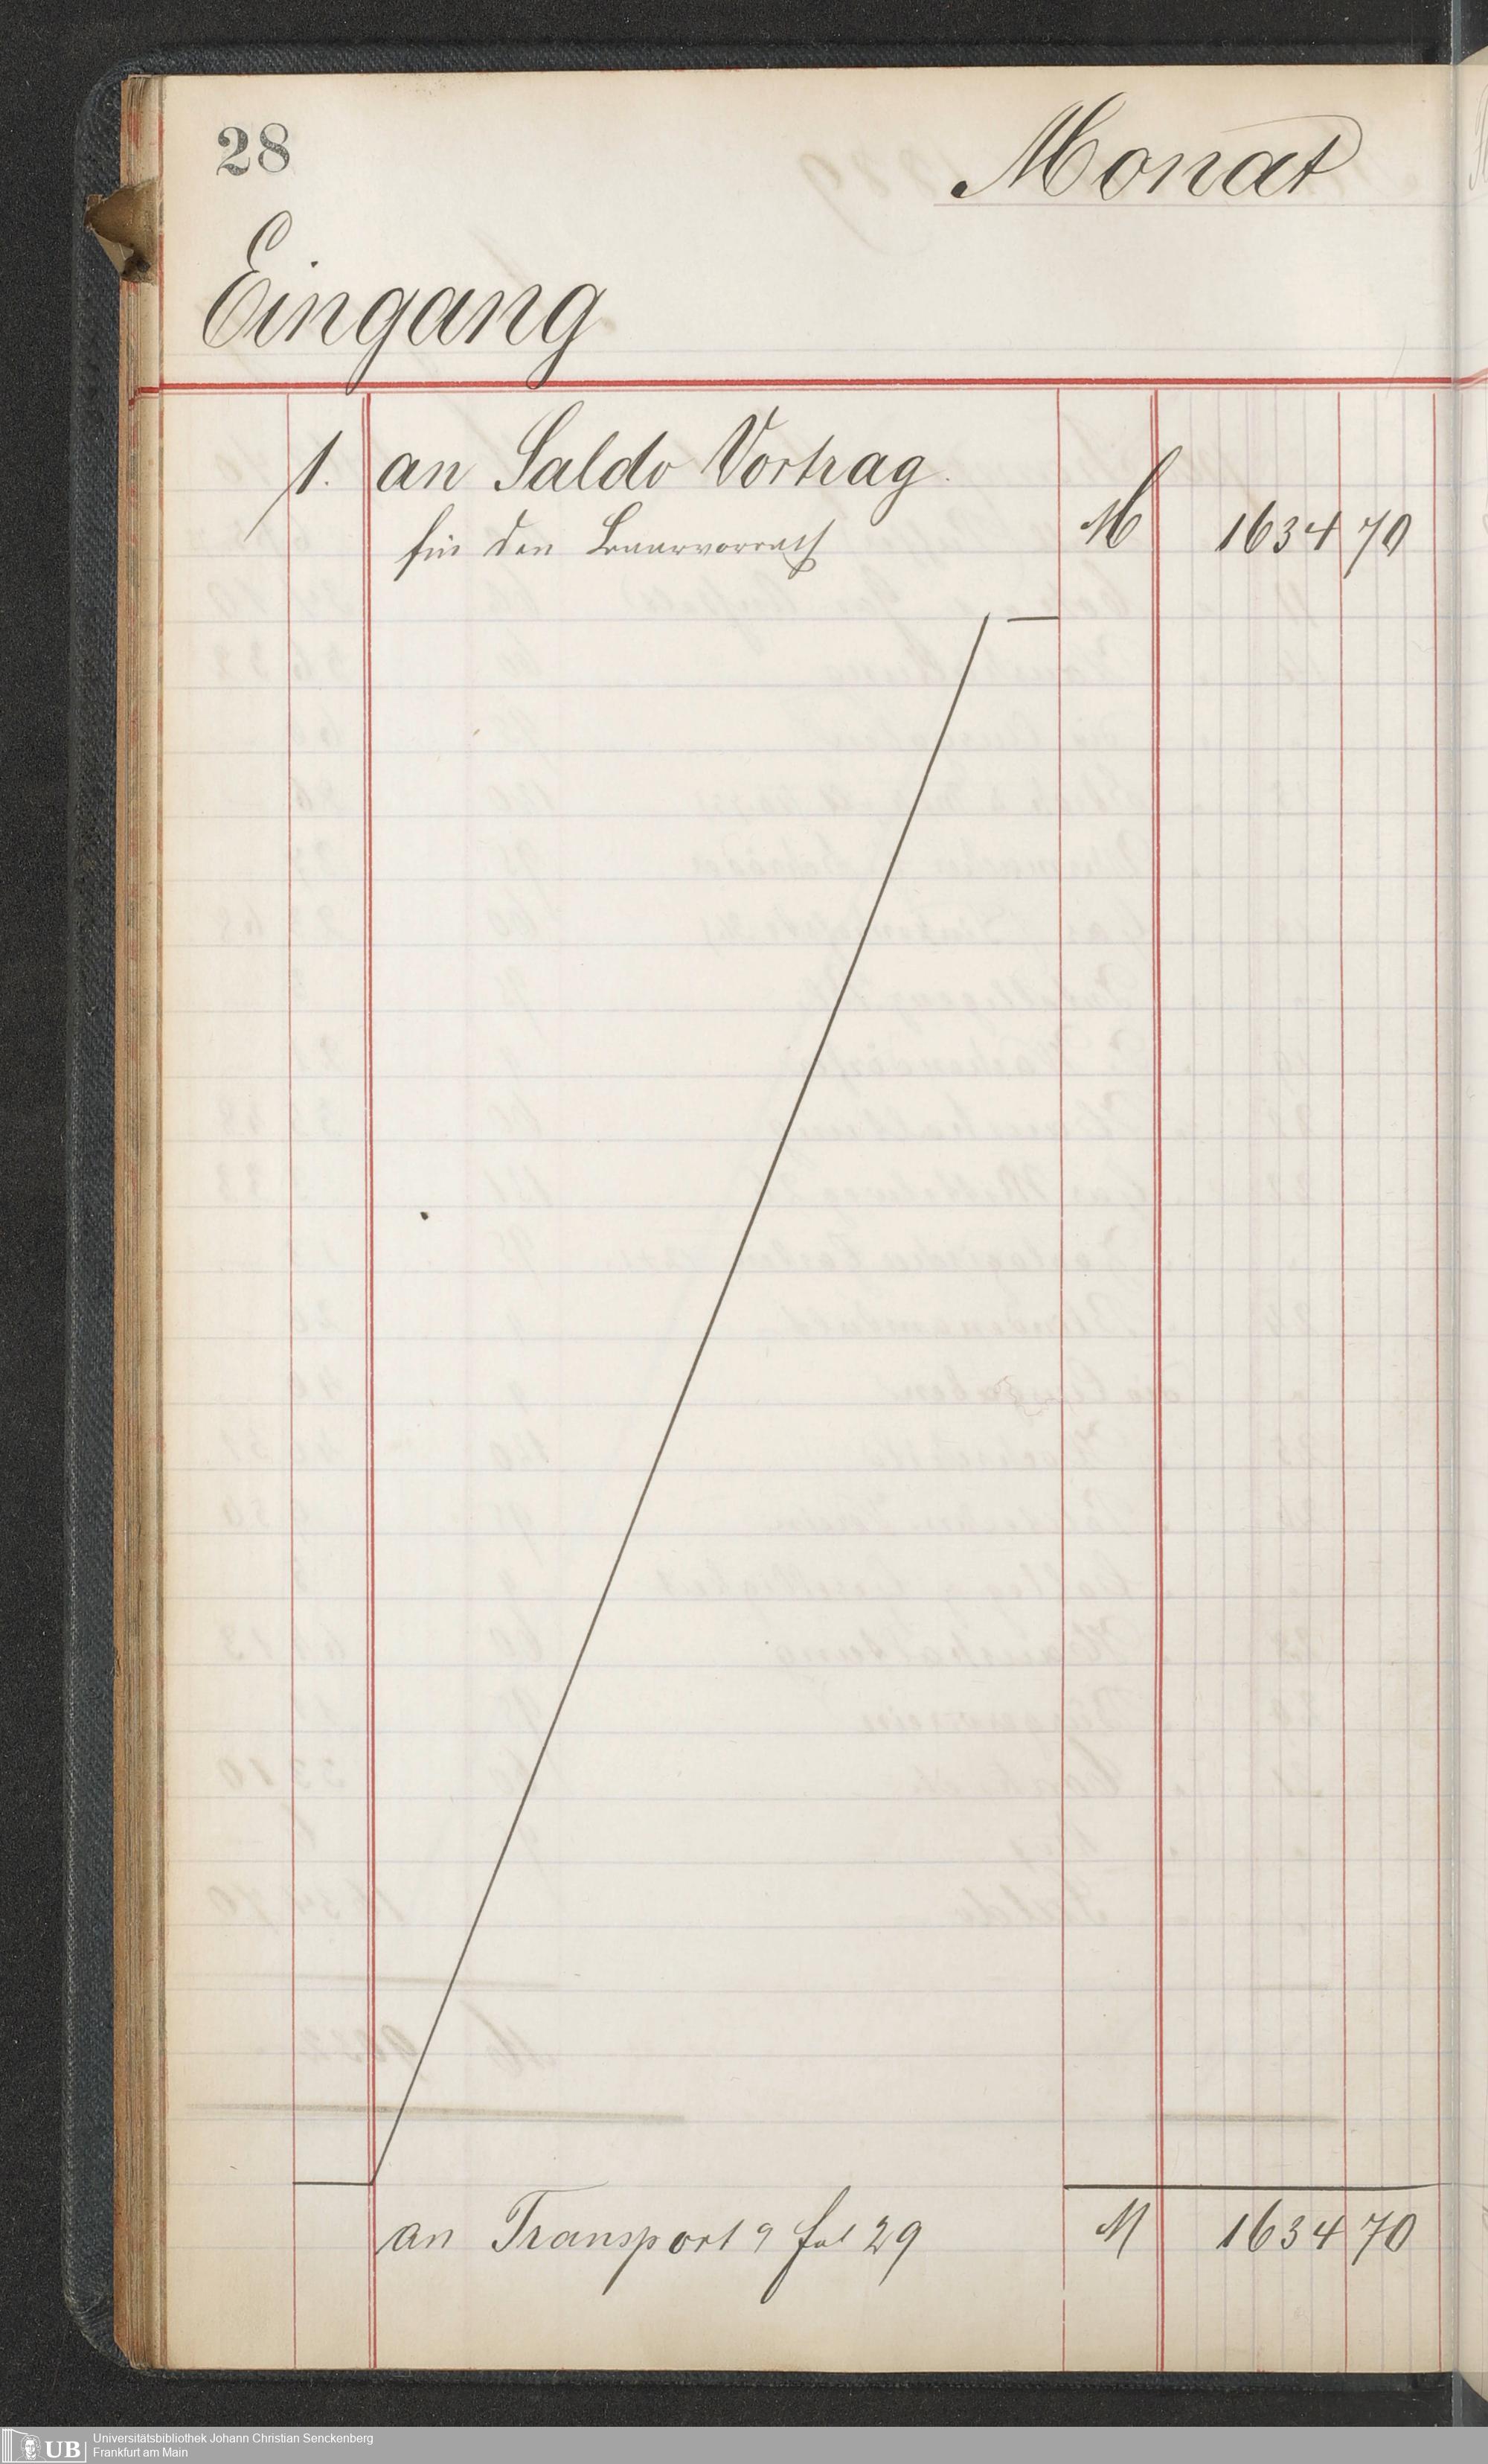 28
Monat
Eingang
1. an Saldo Vortrag.
für den Baarvorrath M 1634 70
an Transport fol 29 M 1634 70
UB Universitätsbibliothek Johann Christian Senckenberg
Frankfurt am Main